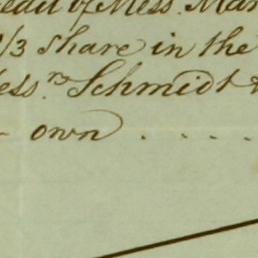 redit of Mess. Mar
1/3 share in the
Mess.rs Schmidt &
- own . . . .